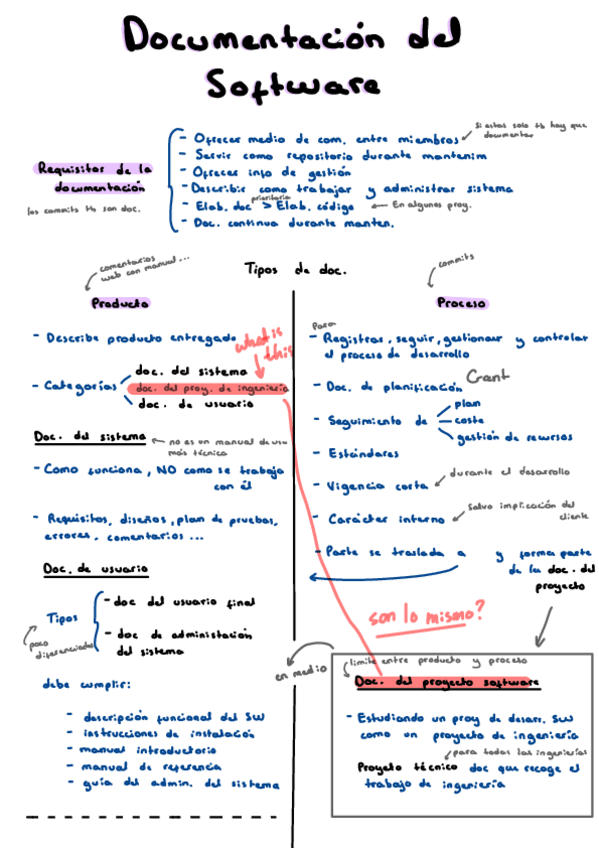 Documentación del
Software
Requisitos de la
documentación
los commits tb son doc.
- Ofrecer medio de com. entre miembros
si estas solo tb hay que
documentar
- Servir como repositorio durante mantenim
- Ofrecer info de gestión
- Describir como trabajar y administrar sistema
prioritario
- Elab. doc > Elab. código
En algunos proy.
- Doc. continua durante manten.
Tipos de doc.
comentarios
web con manual...
Producto
- Describe producto entregado
what is
this
- Categorías
doc. del sistema
doc. del proy. de ingeniería
doc. de usuario
Doc. del sistema
no es un manual de usu
más técnica
- Como funciona, NO como se trabaja
con él
- Requisitos, diseños, plan de pruebas,
errores, comentarios ...
Doc. de usuario
Tipos
poco
diferenciados
- doc del usuario final
- doc de administación
del sistema
debe cumplir:
- descripción funcional del SW
- instrucciones de instalación
- manual introductorio
- manual de referencia
- guía del admin. del sistema
commits
Proceso
Para
- Registrar, seguir, gestionar y controlar
el proceso de desarrollo
- Doc. de planificación
Gantt
- Seguimiento de
plan
coste
gestión de recursos
- Estándares
- Vigencia corta
durante el desarrollo
- Carácter interno
salvo implicación del
cliente
- Parte se traslada a y forma parte
de la doc. del
proyecto
son lo mismo?
en medio
limite entre producto y proceso
Doc. del proyecto software
- Estudiando un proy de desarr. SW
como un proyecto de ingeniería
para todas las ingenierías
Proyeto técnico doc que recoge el
trabajo de ingeniería